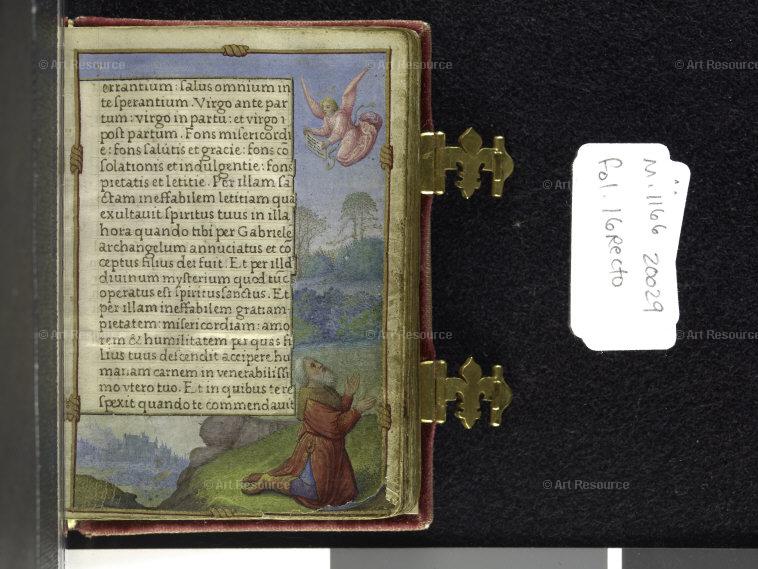 errantium: salus omnium in
te sperantium. Virgo ante par
tum: virgo in partu: et virgo
post partum. Fons misericordi
e: fons salutis et gracie: fons cō
solationis et indulgentie: fons
pietatis et letitie. Per illam sa
ctam ineffabilem letitiam qua
exultauit spiritus tuus in illa
hora quando tibi per Gabriele
archangelum annuciatus et cō
ceptus filius dei fuit. Et per illd
diuinum mysterium quod tūc
operatus est spiritussanctus. Et
per illam ineffabilem gratiam
pietatem: misericordiam: amo
rem & humilitatem per quas fi
lius tuus descendit accipere hu
manam carnem in venerabilissi
mo vtero tuo. Et in quibus te re
spexit quando te commendauit
M. 1166 20029
fol. 16 recto
© Art Resource
© Art Resource
© Art Resource
© Art Resource
© Art Resource
© Art Resource
© Art Resource
© Art Resource
© Art Resource
© Art Resource